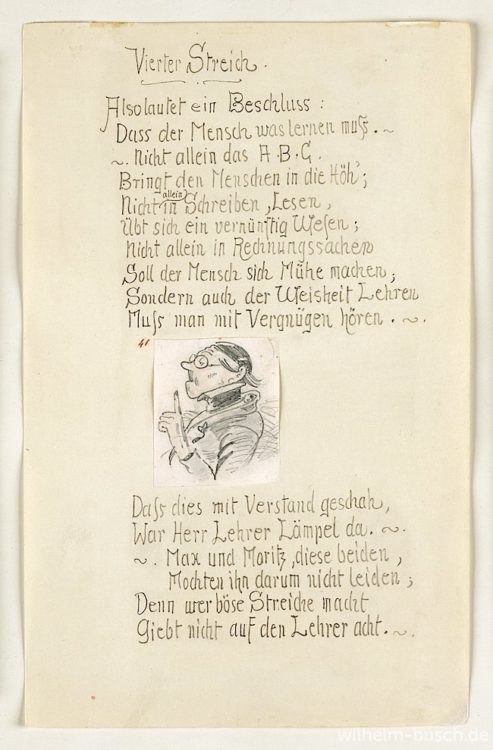 Vierter Streich.
Also lautet ein Beschluss:
Dass der Mensch was lernen muß. ~
~. Nicht allein das A.B.C.
Bringt den Menschen in die Höh';
Nicht allein in Schreiben, Lesen,
Übt sich ein vernünftig Wesen;
Nicht allein in Rechnungssachen
Soll der Mensch sich Mühe machen;
Sondern auch der Weisheit Lehren
Muß man mit Vergnügen hören. ~.
41
Daß dies mit Verstand geschah,
War Herr Lehrer Lämpel da. ~.
~. Max und Moritz, diese beiden,
Mochten ihn darum nicht leiden;
Denn wer böse Streiche macht
Giebt nicht auf den Lehrer acht. ~.
wilhelm-busch.de